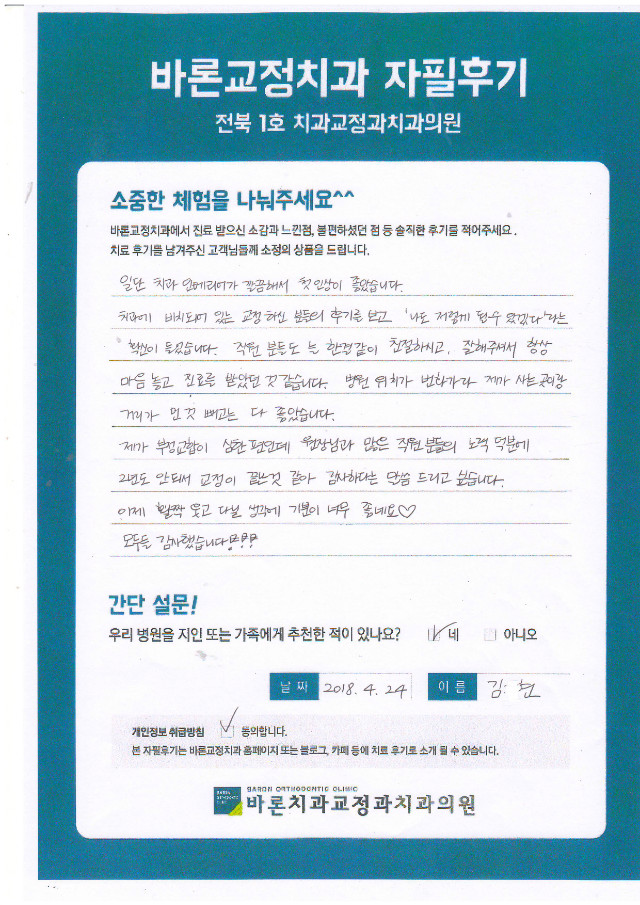 바론교정치과 자필후기
전북 1호 치과교정과치과의원
소중한 체험을 나눠주세요^^
바론교정치과에서 진료 받으신 소감과 느낀점, 불편하셨던 점 등 솔직한 후기를 적어주세요.
치료 후기를 남겨주신 고객님들께 소정의 상품을 드립니다.
일단 치과 인테리어가 깔끔해서 첫인상이 좋았습니다.
치과에 비치되어 있는 교정하신 분들의 후기를 보고 '나도 저렇게 될 수 있겠다'라는
확신이 들었습니다. 직원 분들도 늘 한결같이 친절하시고, 잘해주셔서 항상
마음 놓고 진료를 받았던 것 같습니다. 병원 위치가 번화가라 제가 사는 곳이랑
거리가 먼 것 빼고는 다 좋았습니다.
제가 부정교합이 심한 편인데 원장님과 많은 직원분들의 노력 덕분에
2년도 안되서 교정이 끝는것 같아 감사하다는 말씀 드리고 싶습니다.
이제 활짝 웃고 다닐 생각에 기분이 너무 좋네요♡
모두들 감사했습니다!!!
간단 설문!
우리 병원을 지인 또는 가족에게 추천한 적이 있나요? ☑ 네 □ 아니오
날 짜 2018. 4. 24 이 름 김: 현
개인정보 취급방침 ☑ 동의합니다.
본 자필후기는 바론교정치과 홈페이지 또는 블로그, 카페 등에 치료 후기로 소개 될 수 있습니다.
BARON ORTHODONTIC CLINIC
바론치과교정과치과의원